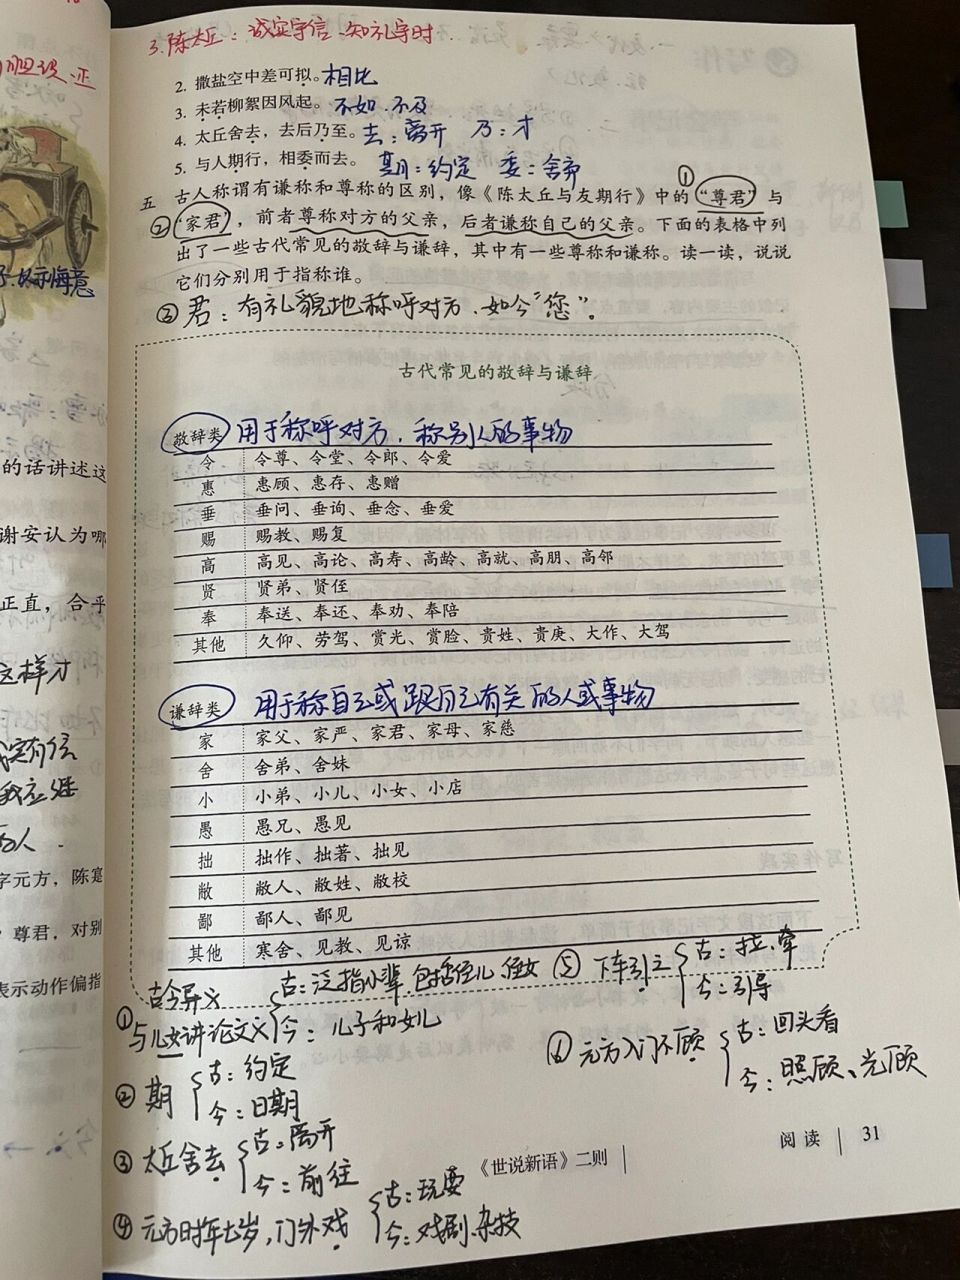 3.陈太丘：诚实守信、知礼守时
2. 撒盐空中差可拟。相比
3. 未若柳絮因风起。不如.不及
4. 太丘舍去，去后乃至。去：离开 乃：才
5. 与人期行，相委而去。期：约定 委：舍弃
五 古人称谓有谦称和尊称的区别，像《陈太丘与友期行》中的①“尊君”与
②“家君”，前者尊称对方的父亲，后者谦称自己的父亲。下面的表格中列
出了一些古代常见的敬辞与谦辞，其中有一些尊称和谦称。读一读，说说
它们分别用于指称谁。
③君：有礼貌地称呼对方.如今“您”.
古代常见的敬辞与谦辞
敬辞类 用于称呼对方，称别人的事物
令 令尊、令堂、令郎、令爱
惠 惠顾、惠存、惠赠
垂 垂问、垂询、垂念、垂爱
赐 赐教、赐复
高 高见、高论、高寿、高龄、高就、高朋、高邻
贤 贤弟、贤侄
奉 奉送、奉还、奉劝、奉陪
其他 久仰、劳驾、赏光、赏脸、贵姓、贵庚、大作、大驾
谦辞类 用于称自己或跟自己有关的人或事物
家 家父、家严、家君、家母、家慈
舍 舍弟、舍妹
小 小弟、小儿、小女、小店
愚 愚兄、愚见
拙 拙作、拙著、拙见
敝 敝人、敝姓、敝校
鄙 鄙人、鄙见
其他 寒舍、见教、见谅
古今异义
①与儿女讲论文义
古：泛指小辈.包括侄儿、侄女
今：儿子和女儿
②期
古：约定
今：日期
③太丘舍去
古：离开
今：前往
④元方时年七岁，门外戏
古：玩耍
今：戏剧.杂技
⑤下车引之
古：拉，牵
今：引导
⑥元方入门不顾
古：回头看
今：照顾、光顾
阅读 31
《世说新语》二则
的话讲述这
谢安认为哪
正直，合乎
这样才
字元方，陈寔
尊君，对别
表示动作偏指